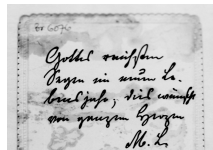 Gottes reichsten
Segen im neuen Le-
bensjahre, dies wünscht
von ganzem Herzen
M. L.